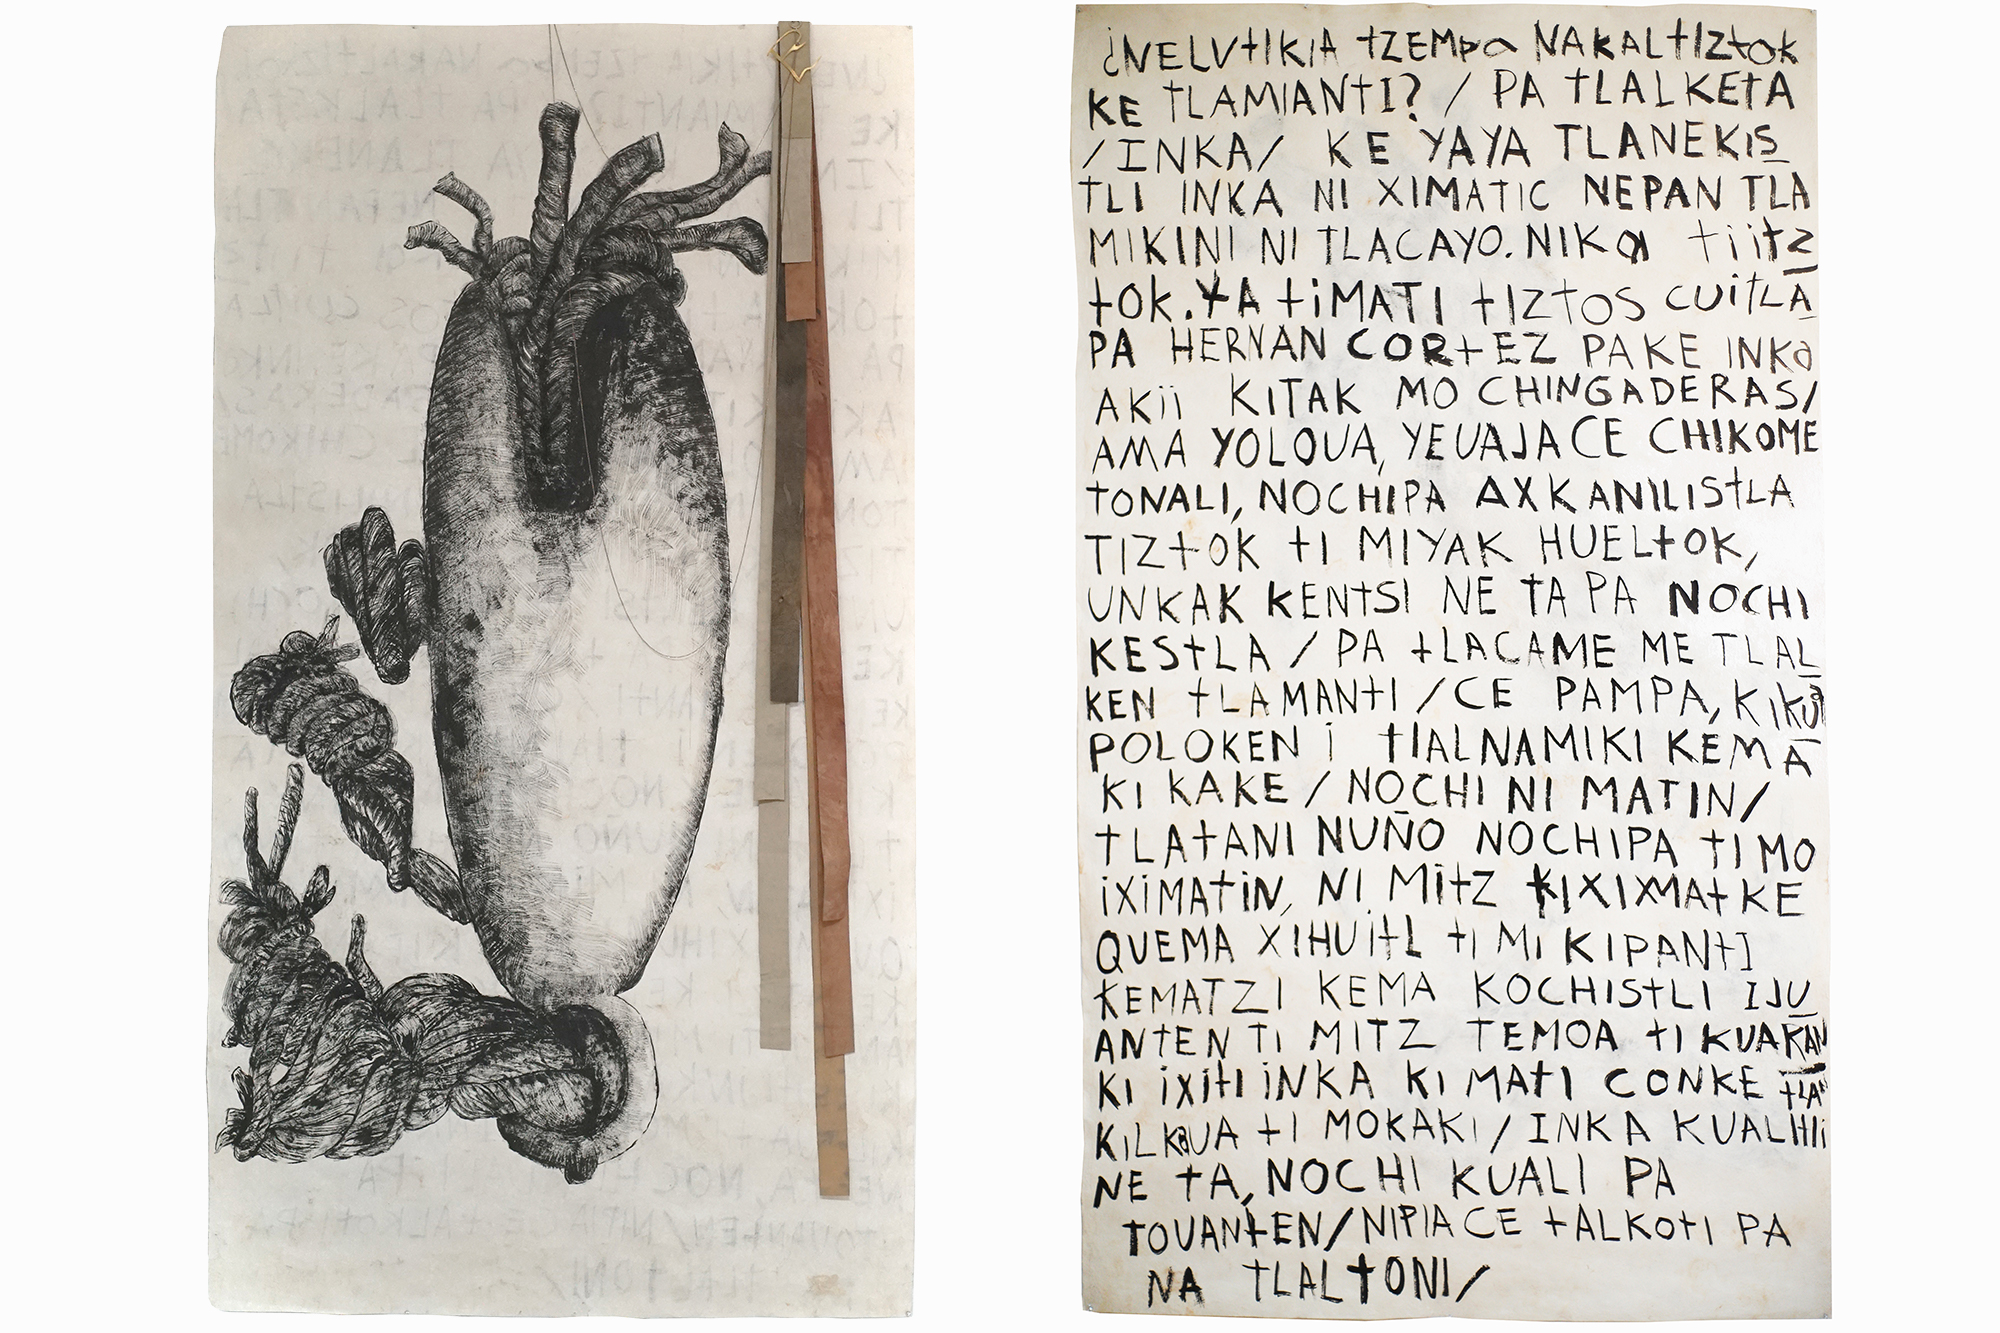 ¿NELVTIKIA TZEMPO NAKALTIZTOK
KE TLAMIANTI? / PA TLALKETA
/INKA/ KE YAYA TLANEKIS
TLI INKA NI XIMATIC NEPAN TLA
MIKINI NI TLACAYO. NIKA TIITZ
TOK. YA TIMATI TIZTOS CUITLA
PA HERNAN CORTEZ PAKE INKA
AKII KITAK MO CHINGADERAS/
AMA YOLOUA, YEUAJA CE CHIKOME
TONALI, NOCHIPA AXKANILISTLA
TIZTOK TI MIYAK HUELTOK,
UNKAK KENTSI NE TA PA NOCHI
KESTLA / PA TLACAME ME TLAL
KEN TLAMANTI / CE PAMPA, KIKUA
POLOKEN I TLALNAMIKI KEMA
KI KAKE / NOCHI NI MATIN/
TLATANI NUÑO NOCHIPA TI MO
IXIMATIN, NI MITZ KIXIMATKE
QUEMA XIHUITL TI MI KIPANTI
KEMATZI KEMA KOCHISTLI IJU
ANTEN TI MITZ TEMOA TI KUAKAN
KI IXITI INKA KI MATI CONKE TLA
KILKAUA TI MOKAKI / INKA KUALITLI
NE TA, NOCHI KUALI PA
TOUANTEN/NIPIA CE TALKOTI PA
NA TLALTONI/